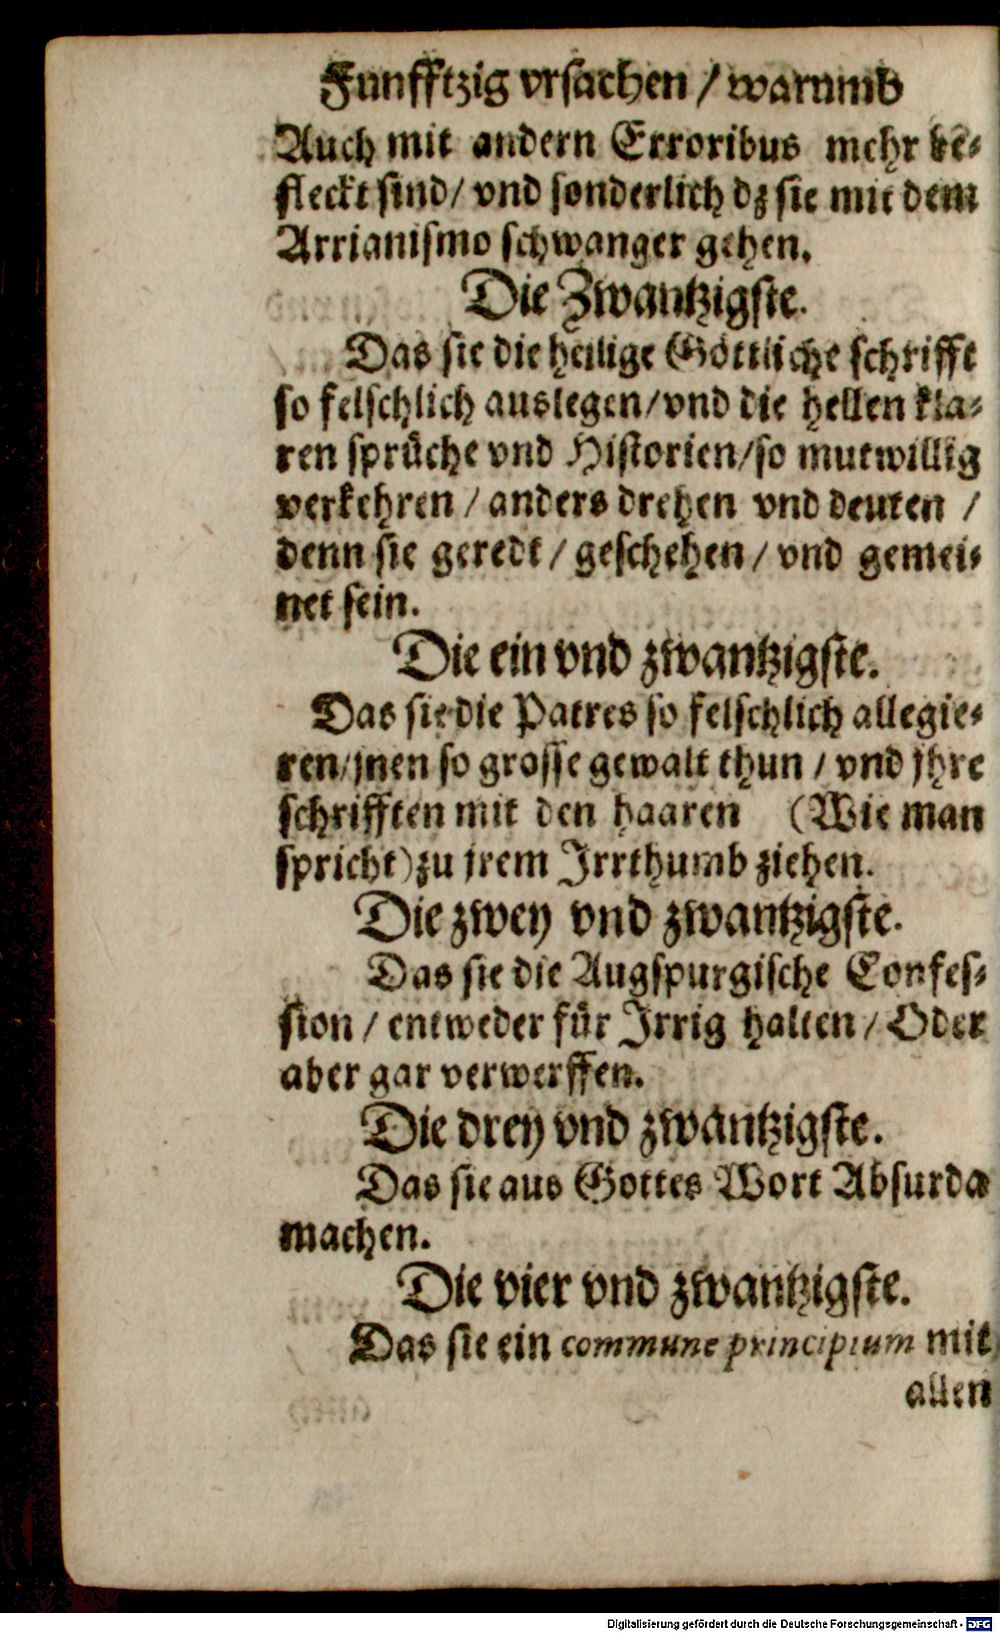 Funfftzig vrsachen / warumb
Auch mit andern Erroribus mehr be-
fleckt sind/ vnd sonderlich dz sie mit dem
Arrianismo schwanger gehen.
Die Zwantzigste.
Das sie die heilige Göttliche schrifft
so felschlich auslegen/vnd die hellen kla-
ren sprüche vnd Historien/so mutwillig
verkehren / anders drehen vnd deuten /
denn sie geredt / geschehen / vnd gemei-
net sein.
Die ein vnd zwantzigste.
Das sie die Patres so felschlich allegie-
ren/jnen so grosse gewalt thun / vnd jhre
schrifften mit den haaren (Wie man
spricht) zu jrem Irrthumb ziehen.
Die zwey vnd zwantzigste.
Das sie die Augspurgische Confes-
sion / entweder für Irrig halten / Oder
aber gar verwerffen.
Die drey vnd zwantzigste.
Das sie aus Gottes Wort Absurda
machen.
Die vier vnd zwantzigste.
Das sie ein commune principium mit
allen
Digitalisierung gefördert durch die Deutsche Forschungsgemeinschaft - DFG